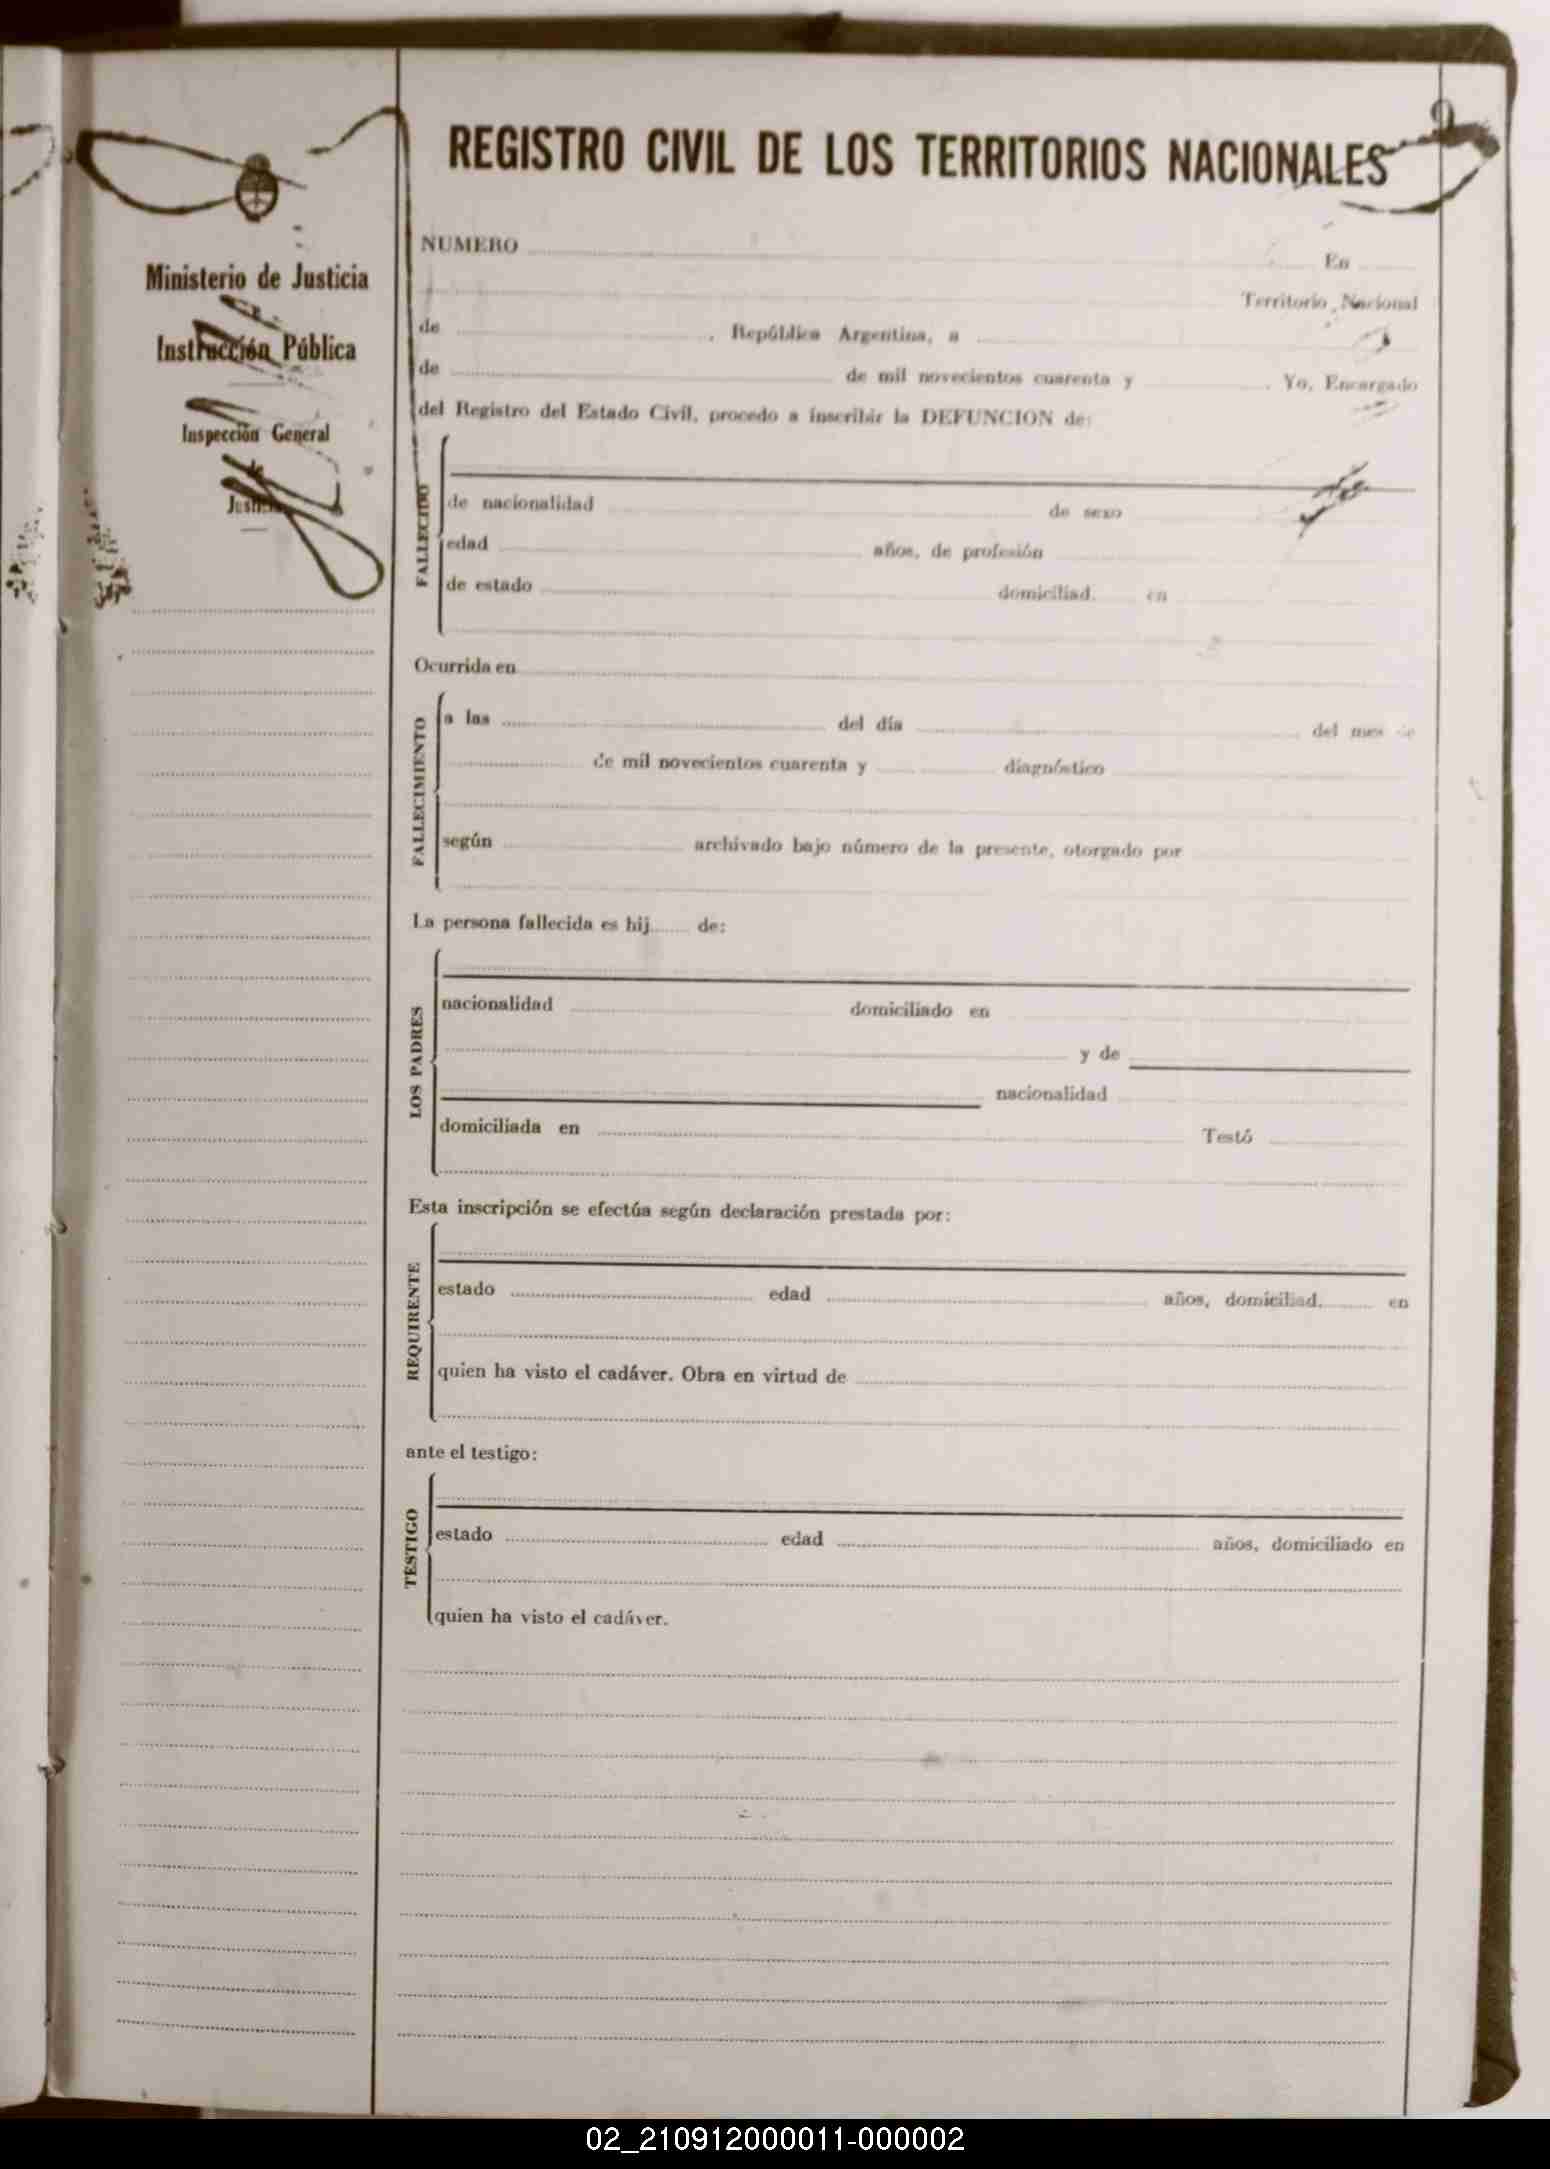 REGISTRO CIVIL DE LOS TERRITORIOS NACIONALES
Ministerio de Justicia
Instrucción Pública
Inspección General
de
Justicia
NUMERO En
Territorio Nacional
de , República Argentina, a
de de mil novecientos cuarenta y . Yo, Encargado
del Registro del Estado Civil, procedo a inscribir la DEFUNCION de:
FALLECIDO
de nacionalidad de sexo
edad años, de profesión
de estado domiciliad en
Ocurrida en
FALLECIMIENTO
a las del día del mes de
de mil novecientos cuarenta y diagnóstico
según archivado bajo número de la presente, otorgado por
La persona fallecida es hij de:
LOS PADRES
nacionalidad domiciliado en
y de
nacionalidad
domiciliada en Testó
Esta inscripción se efectúa según declaración prestada por:
REQUIRENTE
estado edad años, domiciliad en
quien ha visto el cadáver. Obra en virtud de
ante el testigo:
TESTIGO
estado edad años, domiciliado en
quien ha visto el cadáver.
02_210912000011-000002